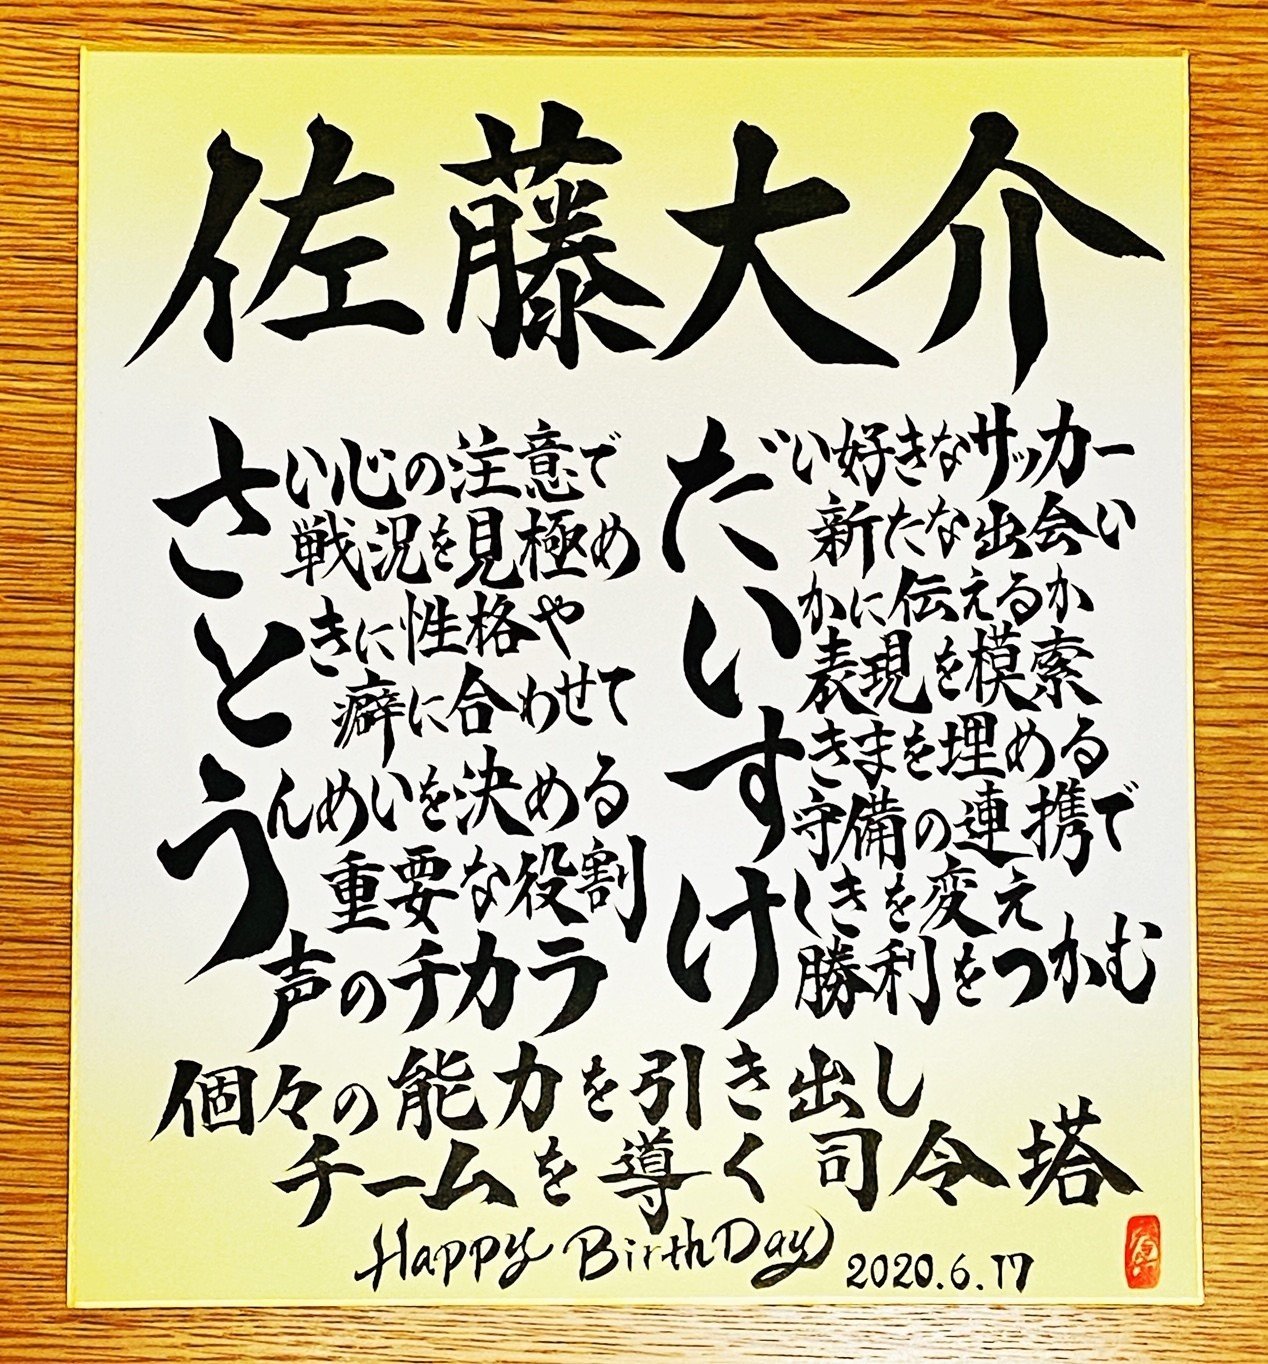 佐藤大介
さい心の注意で
戦況を見極め
ときに性格や
癖に合わせて
うんめいを決める
重要な役割
声のチカラ
だい好きなサッカー
新たな出会い
いかに伝えるか
表現を模索
すきまを埋める
守備の連携で
けしきを変え
勝利をつかむ
個々の能力を引き出し
チームを導く司令塔
Happy BirthDay
2020.6.17